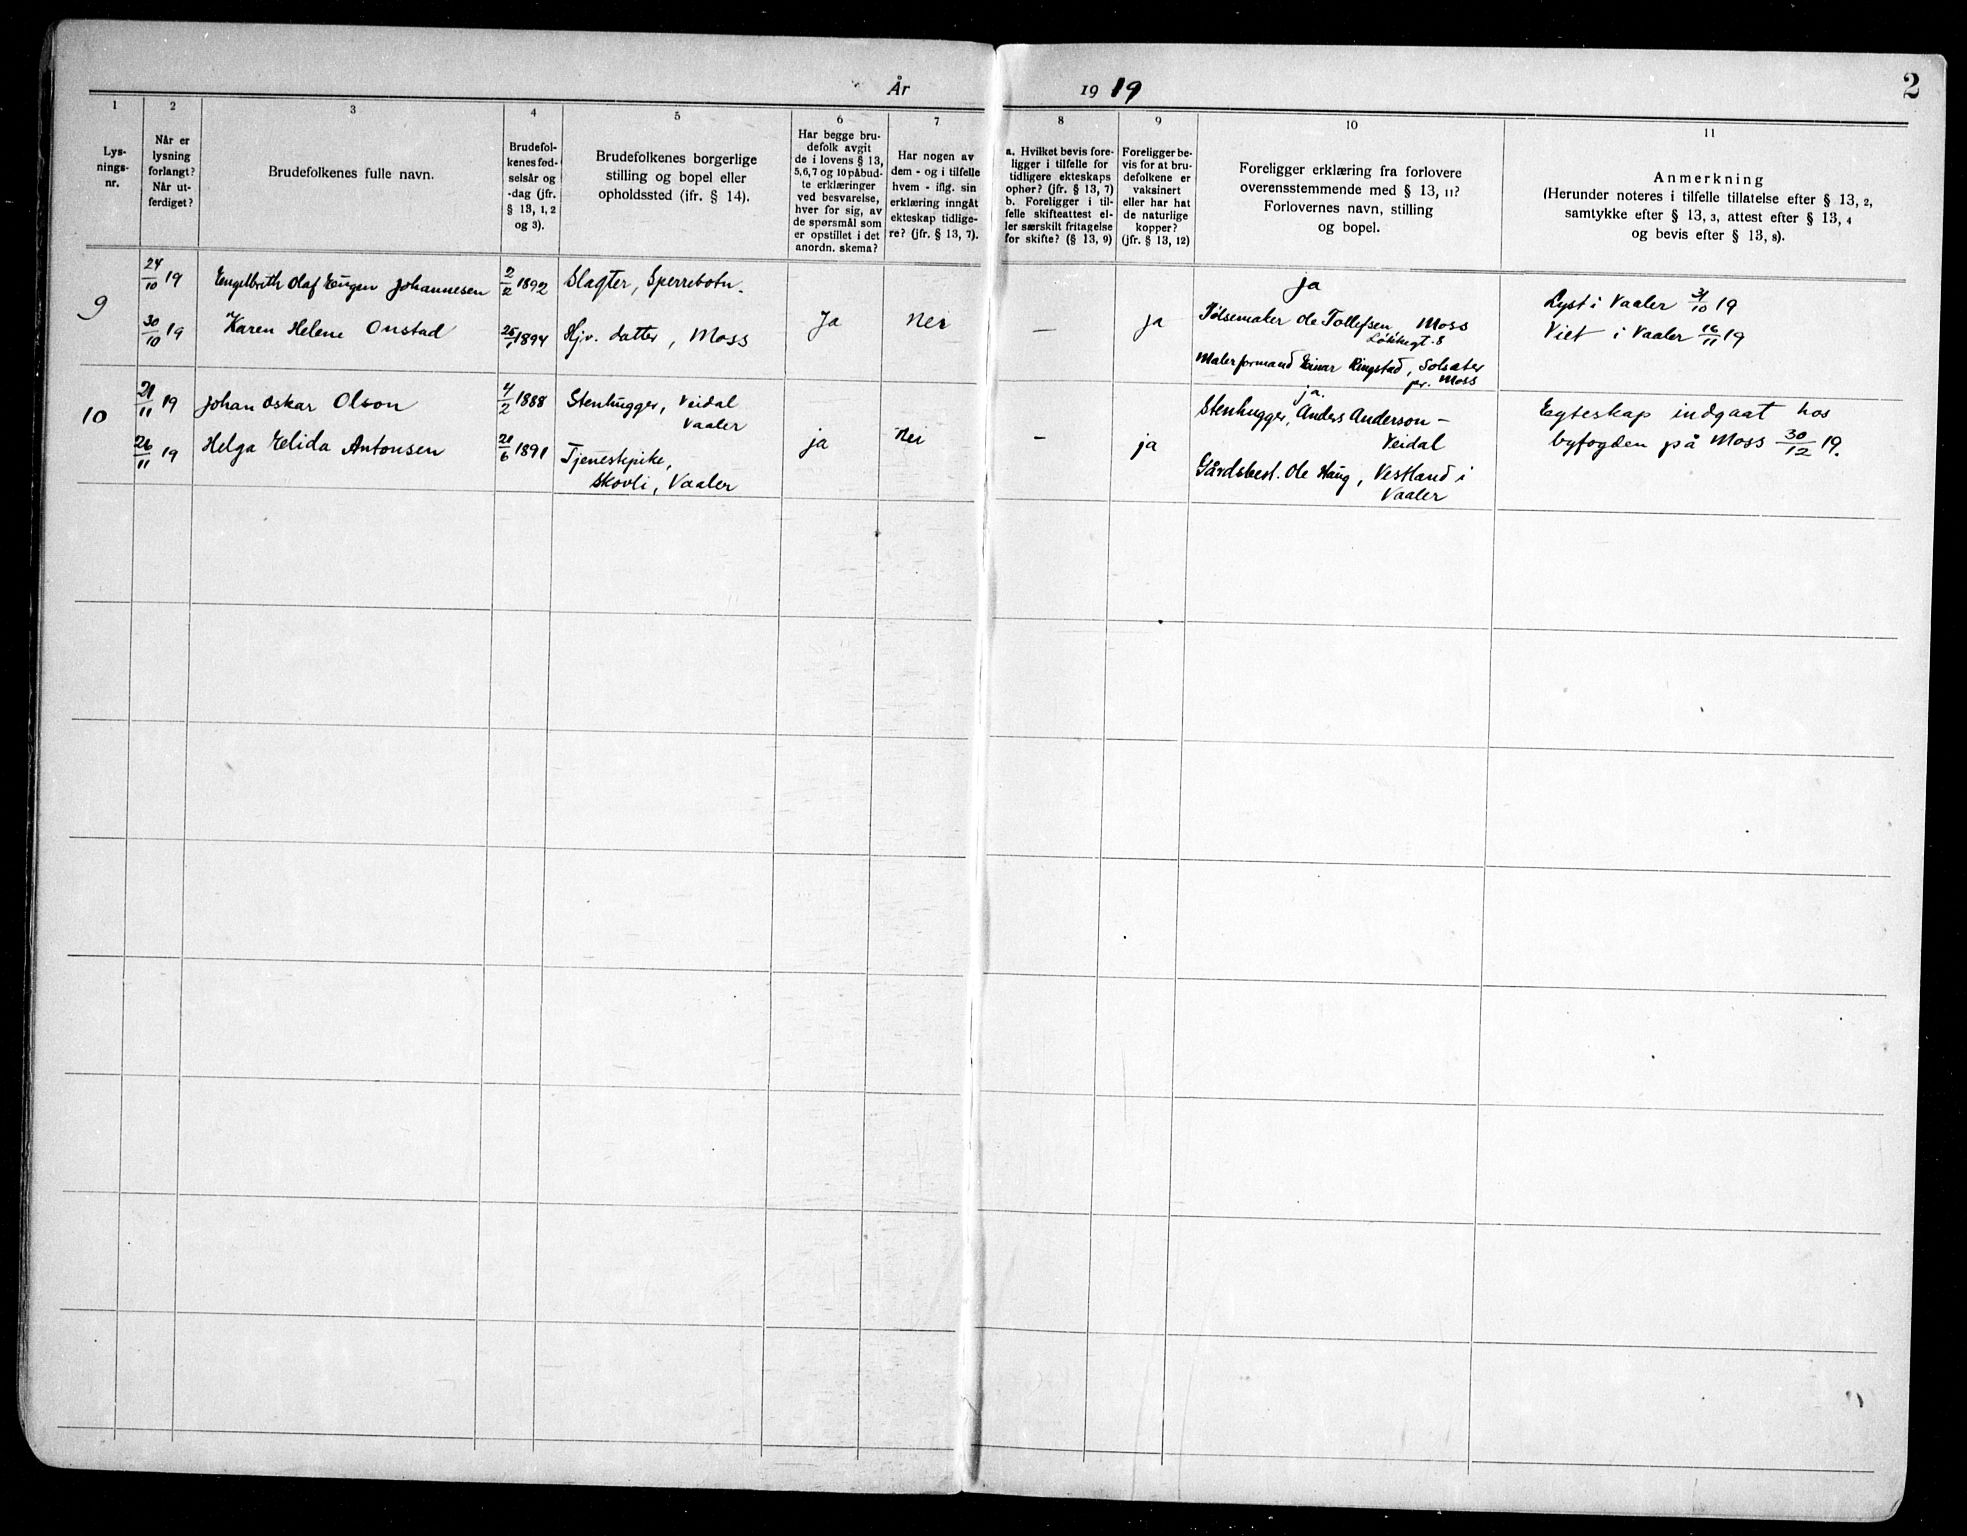 År 1919
2
1
2
3
4
5
6
7
8
9
10
11
Lys-
nings-
nr.
Når er
lysning
forlangt?
Når ut-
ferdiget?
Brudefolkenes fulle navn.
Brudefol-
kenes fød-
selsår og
-dag (jfr.
§ 13, 1, 2
og 3).
Brudefolkenes borgerlige
stilling og bopel eller
opholdssted (jfr. § 14).
Har begge bru-
defolk avgit
de i lovens § 13,
5,6,7 og 10 påbud-
te erklæringer
ved besvarelse,
hver for sig, av
de spørsmål som
er opstillet i det
anordn. skema?
Har nogen av
dem - og i tilfelle
hvem - iflg. sin
erklæring inngåt
ekteskap tidlige-
re? (jfr. § 13, 7).
a. Hvilket bevis fore-
ligger i tilfelle for
tidligere ekteskaps
ophør? (jfr. § 13, 7)
b. Foreligger i til-
felle skifteattest el-
ler særskilt fritagelse
for skifte? (§ 13, 9)
Foreligger be-
vis for at bru-
defolkene er
vaksinert
eller har hat
de naturlige
kopper?
(jfr. § 13, 12)
Foreligger erklæring fra forlovere
overensstemmende med § 13, 11?
Forlovernes navn, stilling
og bopel.
Anmerkning
(Herunder noteres i tilfelle tillatelse efter § 13, 2,
samtykke efter § 13, 3, attest efter § 13, 4
og bevis efter § 13, 8).
9
24/10 19
Engelbrith Olaf Eugen Johannesen
2/2 1892
Slagter, Sperrebotn.
30/10 19
Karen Helene Onstad
1894
Hjv. datter, Moss
Ja
Nei
—
ja
ja
Pølsemaker Ole Tollefsen, Moss
Malerformand Einar Ringstad, Solsæter
pr. Moss
Lyst i Vaaler 31/10 19
Viet i Vaaler 16/11 19
10
21/11 19
Johan Oskar Olson
4/2 1888
Stenhugger, Veidal
Vaaler
26/11 19
Helga Elida Antonsen
21/6 1891
Tjenestepike,
Skovli, Vaaler
ja
Nei
—
ja
ja.
Stenhugger, Anders Anderson -
Veidal
Gårdsbest. Ole Haug, Vestland i
Vaaler
Egteskap indgaat hos
byfogden på Moss 30/12 19.